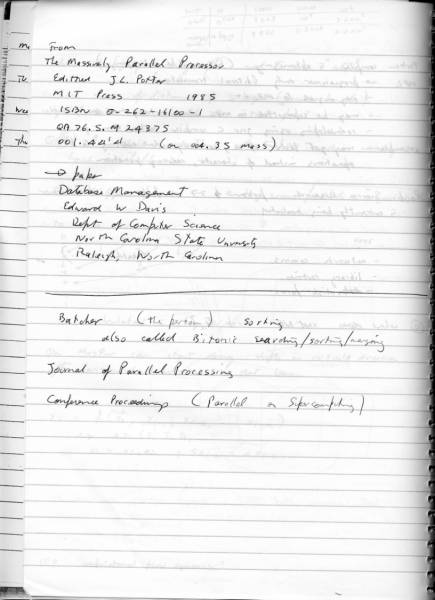 From
The Massively Parallel Processor
Edited J.L. Potter
MIT Press 1985
ISBN 0-262-16100-1
QA 76.5.M 24375
001.4 (or 004.35 mass)
→ paper
Database Management
Edward W Davis
Dept of Computer Science
North Carolina State University
Raleigh, North Carolina
Batcher (the person) sorting
also called Bitonic searching/sorting/merging
Journal of Parallel Processing
Conference Proceedings (Parallel or Supercomputing)